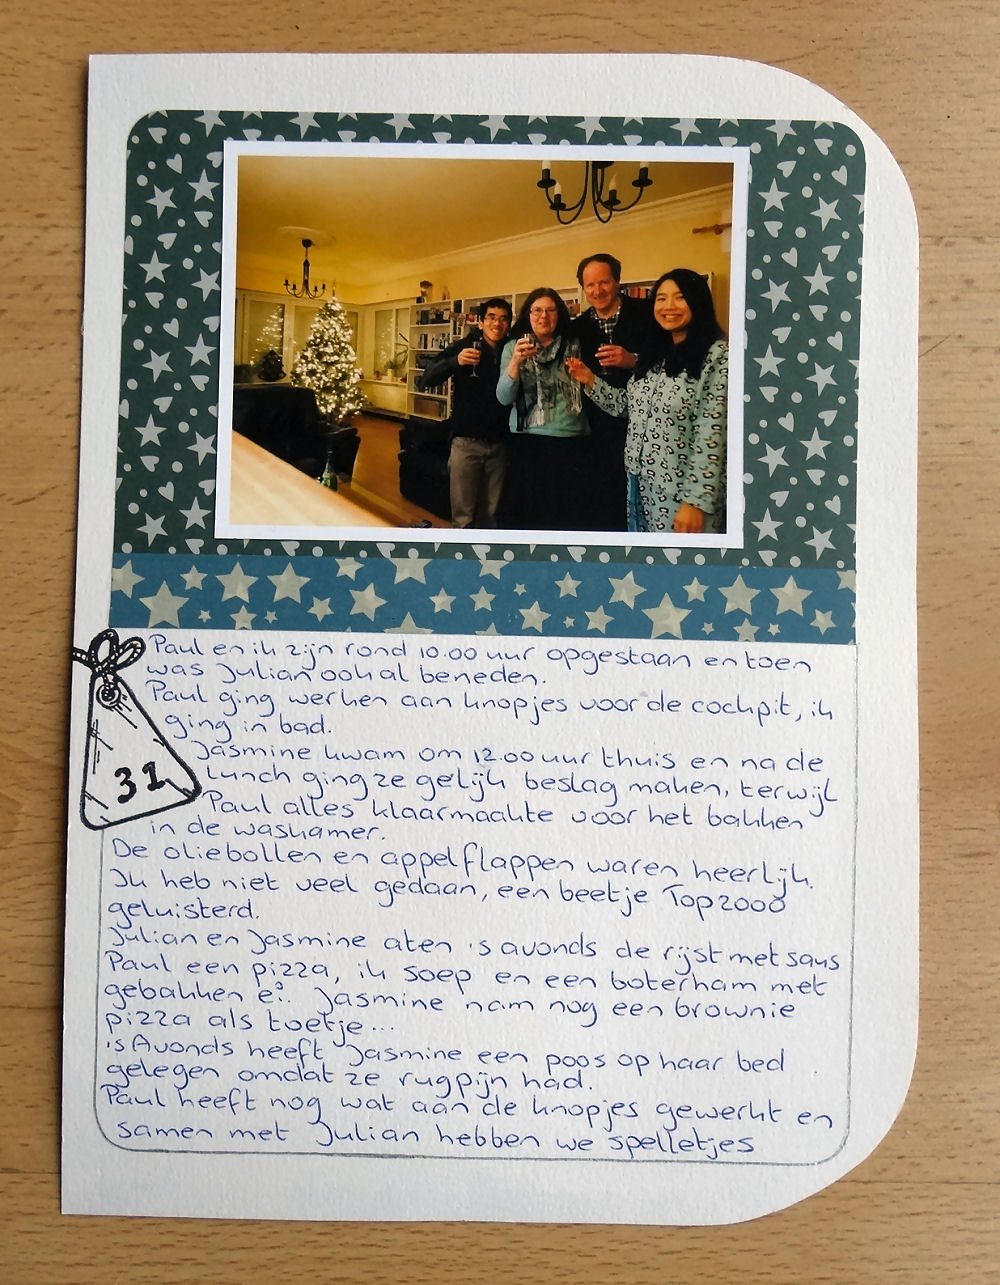 Paul en ik zijn rond 10.00 uur opgestaan en toen
was Julian ook al beneden.
Paul ging werken aan knopjes voor de cockpit, ik
ging in bad.
Jasmine kwam om 12.00 uur thuis en na de
lunch ging ze gelijk beslag maken, terwijl
Paul alles klaarmaakte voor het bakken
in de waskamer.
31
De oliebollen en appelflappen waren heerlijk.
Ik heb niet veel gedaan, een beetje Top 2000
geluisterd.
Julian en Jasmine aten 's avonds de rijst met saus
Paul een pizza, ik soep en een boterham met
gebakken ei. Jasmine nam nog een brownie
pizza als toetje...
's Avonds heeft Jasmine een poos op haar bed
gelegen omdat ze rugpijn had.
Paul heeft nog wat aan de knopjes gewerkt en
samen met Julian hebben we spelletjes